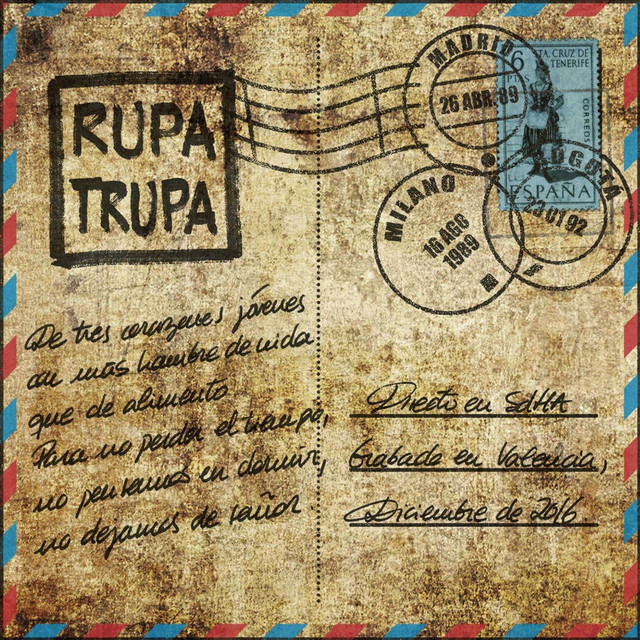 RUPA
TRUPA
MADRID
26 ABR 89
6
PTS
STA. CRUZ DE
TENERIFE
CORREOS
ESPAÑA
MILANO
16 AGO
1989
BOGOTA
23 01 92
De tres corazones jóvenes
con más hambre de vida
que de alimento
Para no perder el tiempo,
no pensamos en dormir,
no dejamos de soñar.
Directo en SdHA
Grabado en Valencia,
Diciembre de 2016